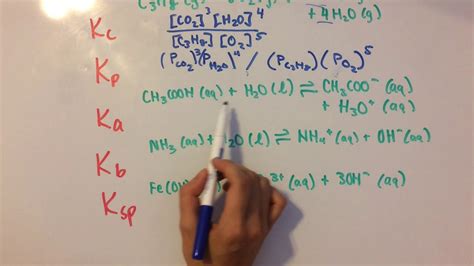 C₃H₈(g) + 4H₂O(g)
[CO₂]³ [H₂O]⁴
K꜀
[C₃H₈] [O₂]⁵
(P_CO₂)³(P_H₂O)⁴ / (P_C₃H₈)(P_O₂)⁵
Kₚ
CH₃COOH (aq) + H₂O(l) ⇌ CH₃COO⁻ (aq)
+ H₃O⁺ (aq)
Kₐ
NH₃(aq) + H₂O(l) ⇌ NH₄⁺(aq) + OH⁻(aq)
K_b
Fe(OH ³⁺(aq) + 3OH⁻(aq)
K_sp